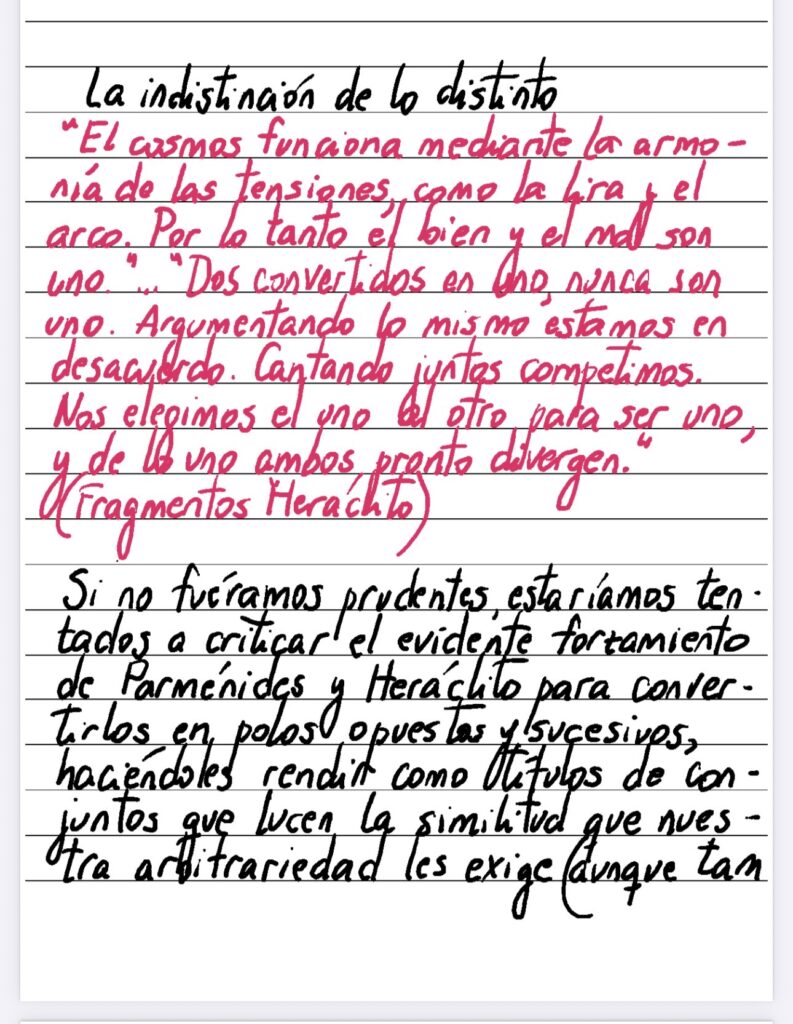 La indistinción de lo distinto
"El cosmos funciona mediante la armo-
nía de las tensiones, como la lira y el
arco. Por lo tanto el bien y el mal son
uno."... "Dos convertidos en uno, nunca son
uno. Argumentando lo mismo estamos en
desacuerdo. Cantando juntos competimos.
Nos elegimos el uno al otro para ser uno,
y de lo uno ambos pronto divergen."
(Fragmentos Heráclito)
Si no fuéramos prudentes, estaríamos ten-
tados a criticar el evidente forzamiento
de Parménides y Heráclito para conver-
tirlos en polos opuestos y sucesivos,
haciéndoles rendir como títulos de con-
juntos que lucen la similitud que nues-
tra arbitrariedad les exige (aunque tam